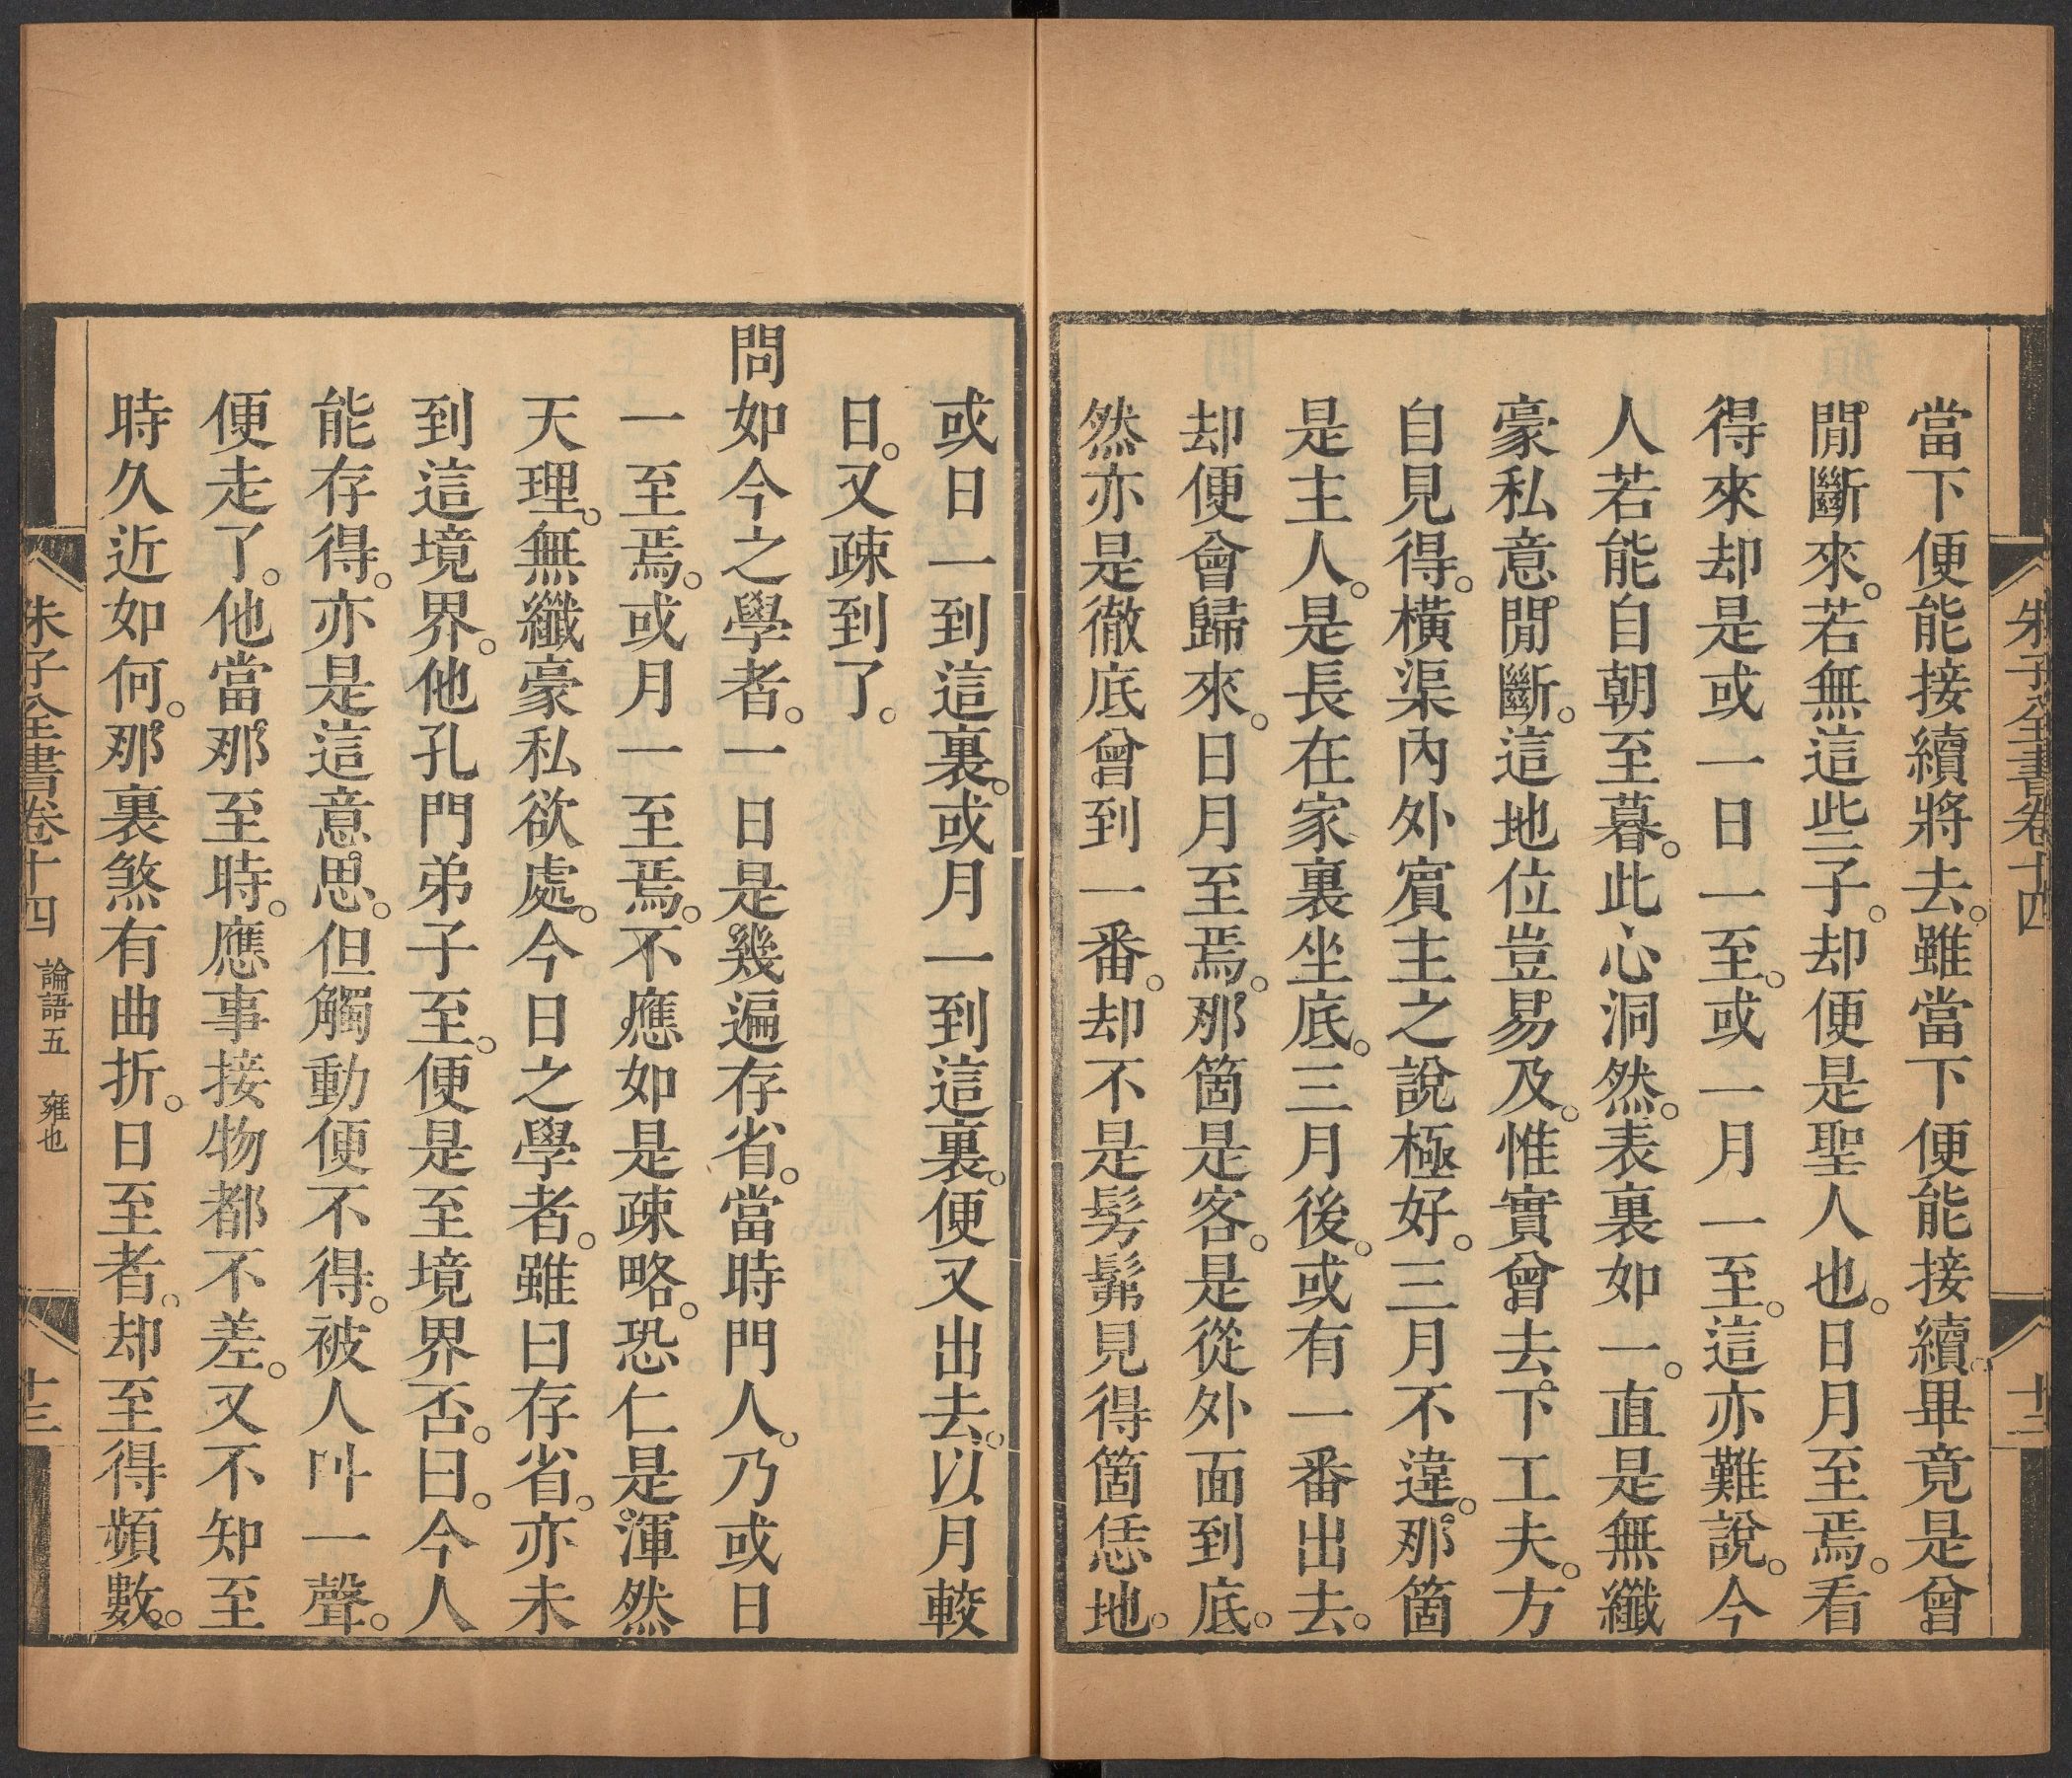 朱子全書卷十四
十二
當下便能接續將去。雖當下便能接續。畢竟是曾
閒斷來。若無這些子。却便是聖人也。日月至焉。看
得來却是或一日一至。或一月一至。這亦難說。今
人若能自朝至暮。此心洞然。表裏如一。直是無纖
豪私意閒斷。這地位豈易及。惟實曾去下工夫。方
自見得。橫渠內外賓主之說極好。三月不違。那箇
是主人。是長在家裏坐底。三月後。或有一番出去。
却便會歸來。日月至焉。那箇是客。是從外面到底。
然亦是徹底曾到一番。却不是髣髴見得箇恁地。
或日一到這裏。或月一到這裏。便又出去。以月較
日。又疎到了。
問如今之學者。一日是幾遍存省。當時門人。乃或日
一至焉。或月一至焉。不應如是疎略。恐仁是渾然
天理。無纖豪私欲處。今日之學者。雖曰存省。亦未
到這境界。他孔門弟子至。便是至境界否。曰。今人
能存得。亦是這意思。但觸動便不得。被人叫一聲。
便走了。他當那至時。應事接物都不差。又不知至
時久近如何。那裏煞有曲折。日至者。却至得頻數。
朱子全書卷十四 論語五 雍也
十三